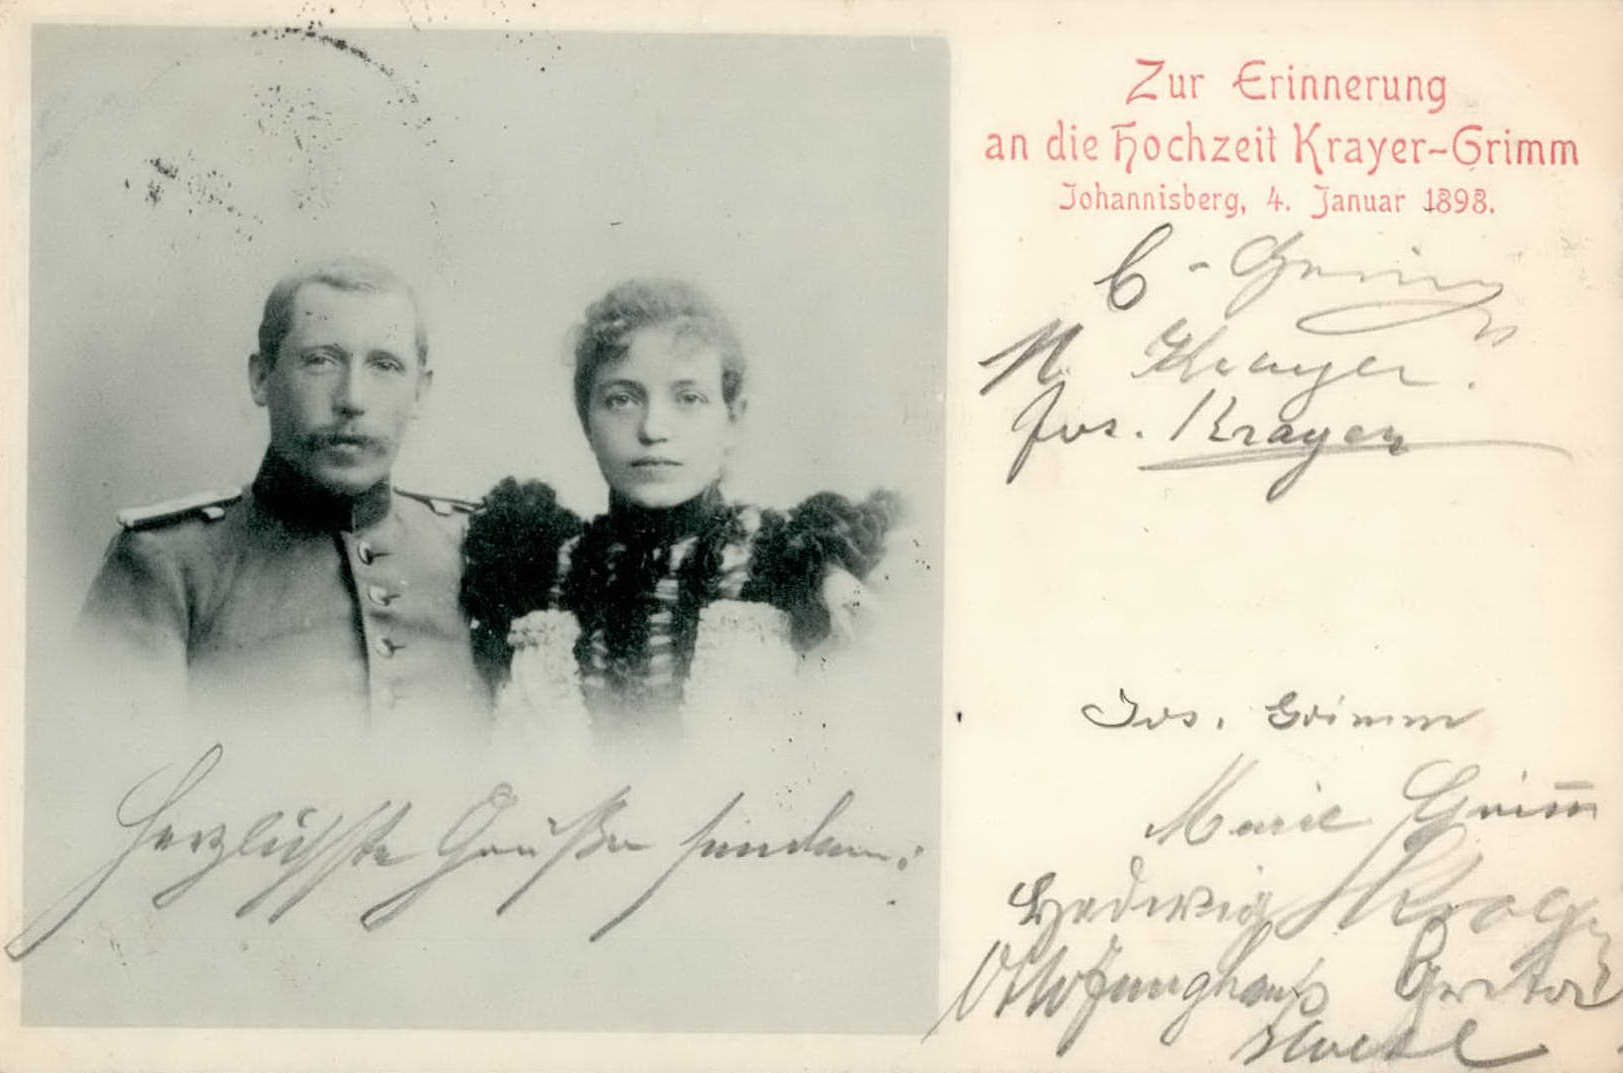 Zur Erinnerung
an die Hochzeit Krayer-Grimm
Johannisberg, 4. Januar 1898.
C - Grimm
N. Krayer.
Jos. Krayer
Jos. Grimm
Marie Grimm
Hedwig
Otto Junghanß
Herzlichste Grüße senden: